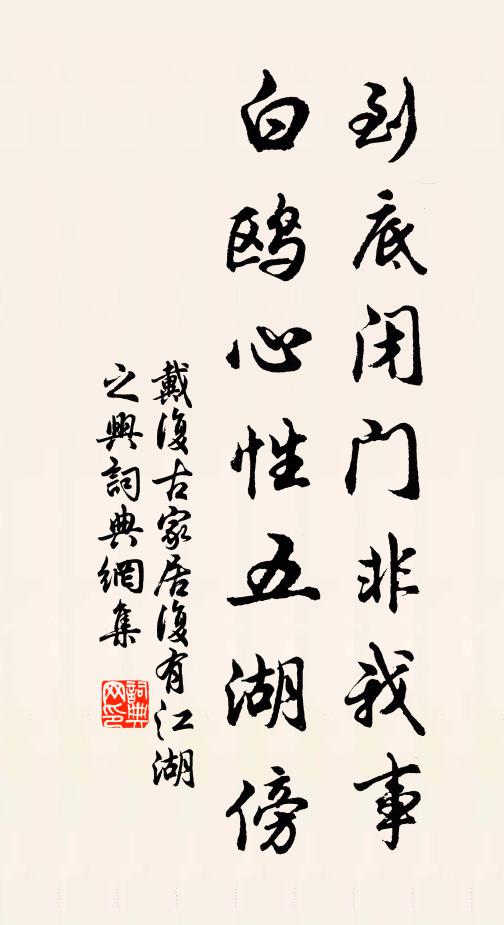 到底闭门非我事
白鸥心性五湖傍
戴復古家居復有江湖
之興詞典網集
詞典网印